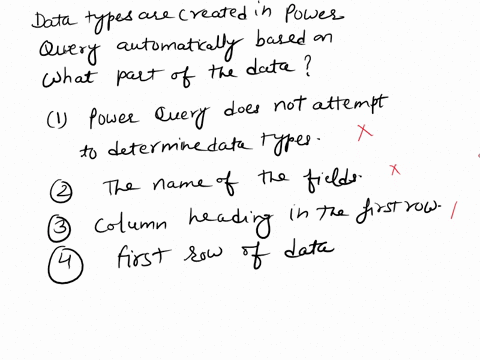 Data types are created in Power
Query automatically based on
what part of the data?
(1) Power Query does not attempt
to determine data types. X
② The name of the fields. X
③ Column heading in the first row.
④ first row of data